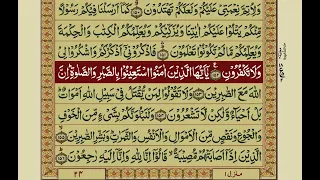 وَلِاُتِمَّ نِعْمَتِیْ عَلَیْكُمْ وَلَعَلَّكُمْ تَهْتَدُوْنَ ۝ كَمَاۤ اَرْسَلْنَا فِیْكُمْ رَسُوْلًا
مِّنْكُمْ یَتْلُوْا عَلَیْكُمْ اٰیٰتِنَا وَیُزَكِّیْكُمْ وَیُعَلِّمُكُمُ الْكِتٰبَ وَالْحِكْمَةَ
وَیُعَلِّمُكُمْ مَّا لَمْ تَكُوْنُوْا تَعْلَمُوْنَ ۝ فَاذْكُرُوْنِیْۤ اَذْكُرْكُمْ وَاشْكُرُوْا لِیْ
وَلَا تَكْفُرُوْنِ ۝ یٰۤاَیُّهَا الَّذِیْنَ اٰمَنُوا اسْتَعِیْنُوْا بِالصَّبْرِ وَالصَّلٰوةِ اِنَّ
اللّٰهَ مَعَ الصّٰبِرِیْنَ ۝ وَلَا تَقُوْلُوْا لِمَنْ یُّقْتَلُ فِیْ سَبِیْلِ اللّٰهِ اَمْوَاتٌ
بَلْ اَحْیَآءٌ وَّلٰكِنْ لَّا تَشْعُرُوْنَ ۝ وَلَنَبْلُوَنَّكُمْ بِشَیْءٍ مِّنَ الْخَوْفِ
وَالْجُوْعِ وَنَقْصٍ مِّنَ الْاَمْوَالِ وَالْاَنْفُسِ وَالثَّمَرٰتِ وَبَشِّرِ الصّٰبِرِیْنَ ۝
الَّذِیْنَ اِذَاۤ اَصَابَتْهُمْ مُّصِیْبَةٌ قَالُوْۤا اِنَّا لِلّٰهِ وَاِنَّاۤ اِلَیْهِ رٰجِعُوْنَ ۝
منزل ۱